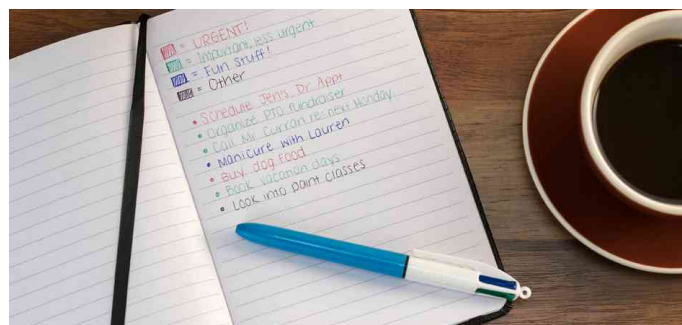 = URGENT!
= Important, less urgent
= Fun Stuff!
= Other
• Schedule Jen's Dr. Appt
• Organize PTO Fundraiser
• Call Mr. Curran re: next Monday
• Manicure with Lauren
• Buy dog food
• Book vacation days
• Look into paint classes